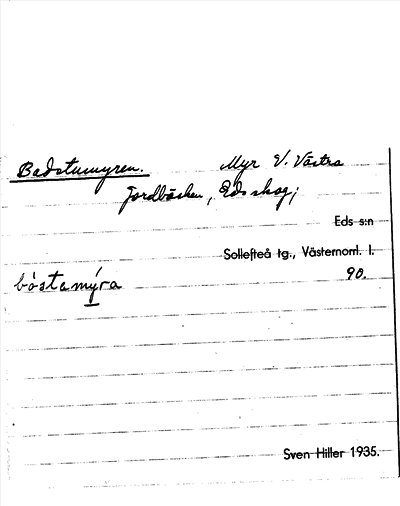 Badstumyren. Myr V. Västra
Jordbäcken, Eds skog;
Eds s:n
Sollefteå tg., Västernorrl. l.
bóstamýra 90.
Sven Hiller 1935.